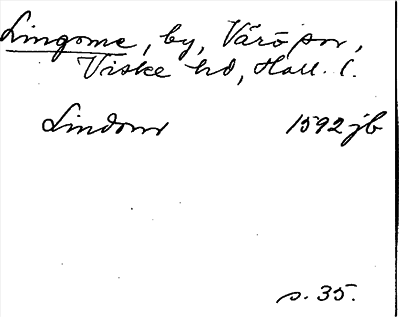 Lingome, by, Värö sn,
Viske hd, Hall. l.
Lindom 1592 jb
s. 35.